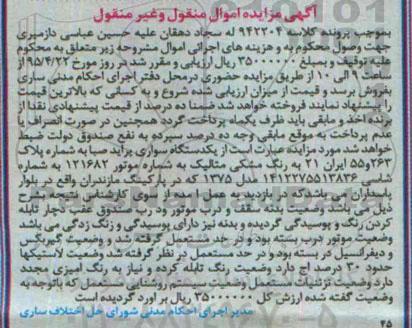 آگهی مزایده اموال منقول وغیر منقول
بموجب پرونده کلاسه ۹۴۲۲۰۴ له سجاد دهقان علیه حسین عباسی دازمیری
جهت وصول محکوم به و هزینه های اجرائی اموال مشروحه زیر متعلق به محکوم
علیه توقیف و بمبلغ ۳۵۰۰۰۰۰۰ ریال ارزیابی و مقرر شد در روز مورخ ۹۵/۴/۲۲ از
ساعت ۹ الی ۱۰ از طریق مزایده حضوری درمحل دفتر اجرای احکام مدنی ساری
بفروش برسد و قیمت از میزان ارزیابی شده شروع و به کسانی که بالاترین قیمت
را پیشنهاد نمایند فروخته خواهد شد ضمنا ده درصد از قیمت پیشنهادی نقدا از
برنده اخذ و مابقی باید ظرف یکماه پرداخت گردد همچنین در صورت انصراف یا
عدم پرداخت به موقع مابقی وجه ده درصد سپرده به نفع صندوق دولت ضبط
خواهد شد مورد مزایده عبارت است از یکدستگاه سواری پراید صبا به شماره پلاک
۲۶۳و۵۵ ایران ۲۱ به رنگ مشکی متالیک به شماره موتور ۱۲۱۶۸۲ به شماره
شاسی ۱۴۱۲۲۷۵۵۱۲۸۳۶ مدل ۱۳۷۵ که در پارکینگ مازندران واقع در بلوار
پاسداران می باشد که در بازدید به عمل آمده از سوی کارشناس به شرح
ذیل می باشد وضعیت بدنه سقف و درب موتور ود رب صندوق عقب دچار تابله
کردن رنگ و پوسیدگی گردیده و بدنه نیز دارای پوسیدگی و زنگ زدگی می باشد
وضعیت موتور درب بسته بود و در حد مستعمل گرفته شد و وضعیت گیربکس
و دیفرانسیل در بسته بود و در حد مستعمل در نظر گرفته شد وضعیت لاستیکها
حدود ۳۰ درصد اج دارد وضعیت رنگ تابله کرده و نیاز به رنگ آمیزی مجدد
دارد وضعیت تزئینات مستعمل وضعیت سیستم روشنایی مستعمل که باتوجه به
وضعیت گفته شده ارزش کل ۳۵۰۰۰۰۰۰ ریال بر آورد گردیده است
مدیر اجرای احکام مدنی شورای حل اختلاف ساری
۴۵